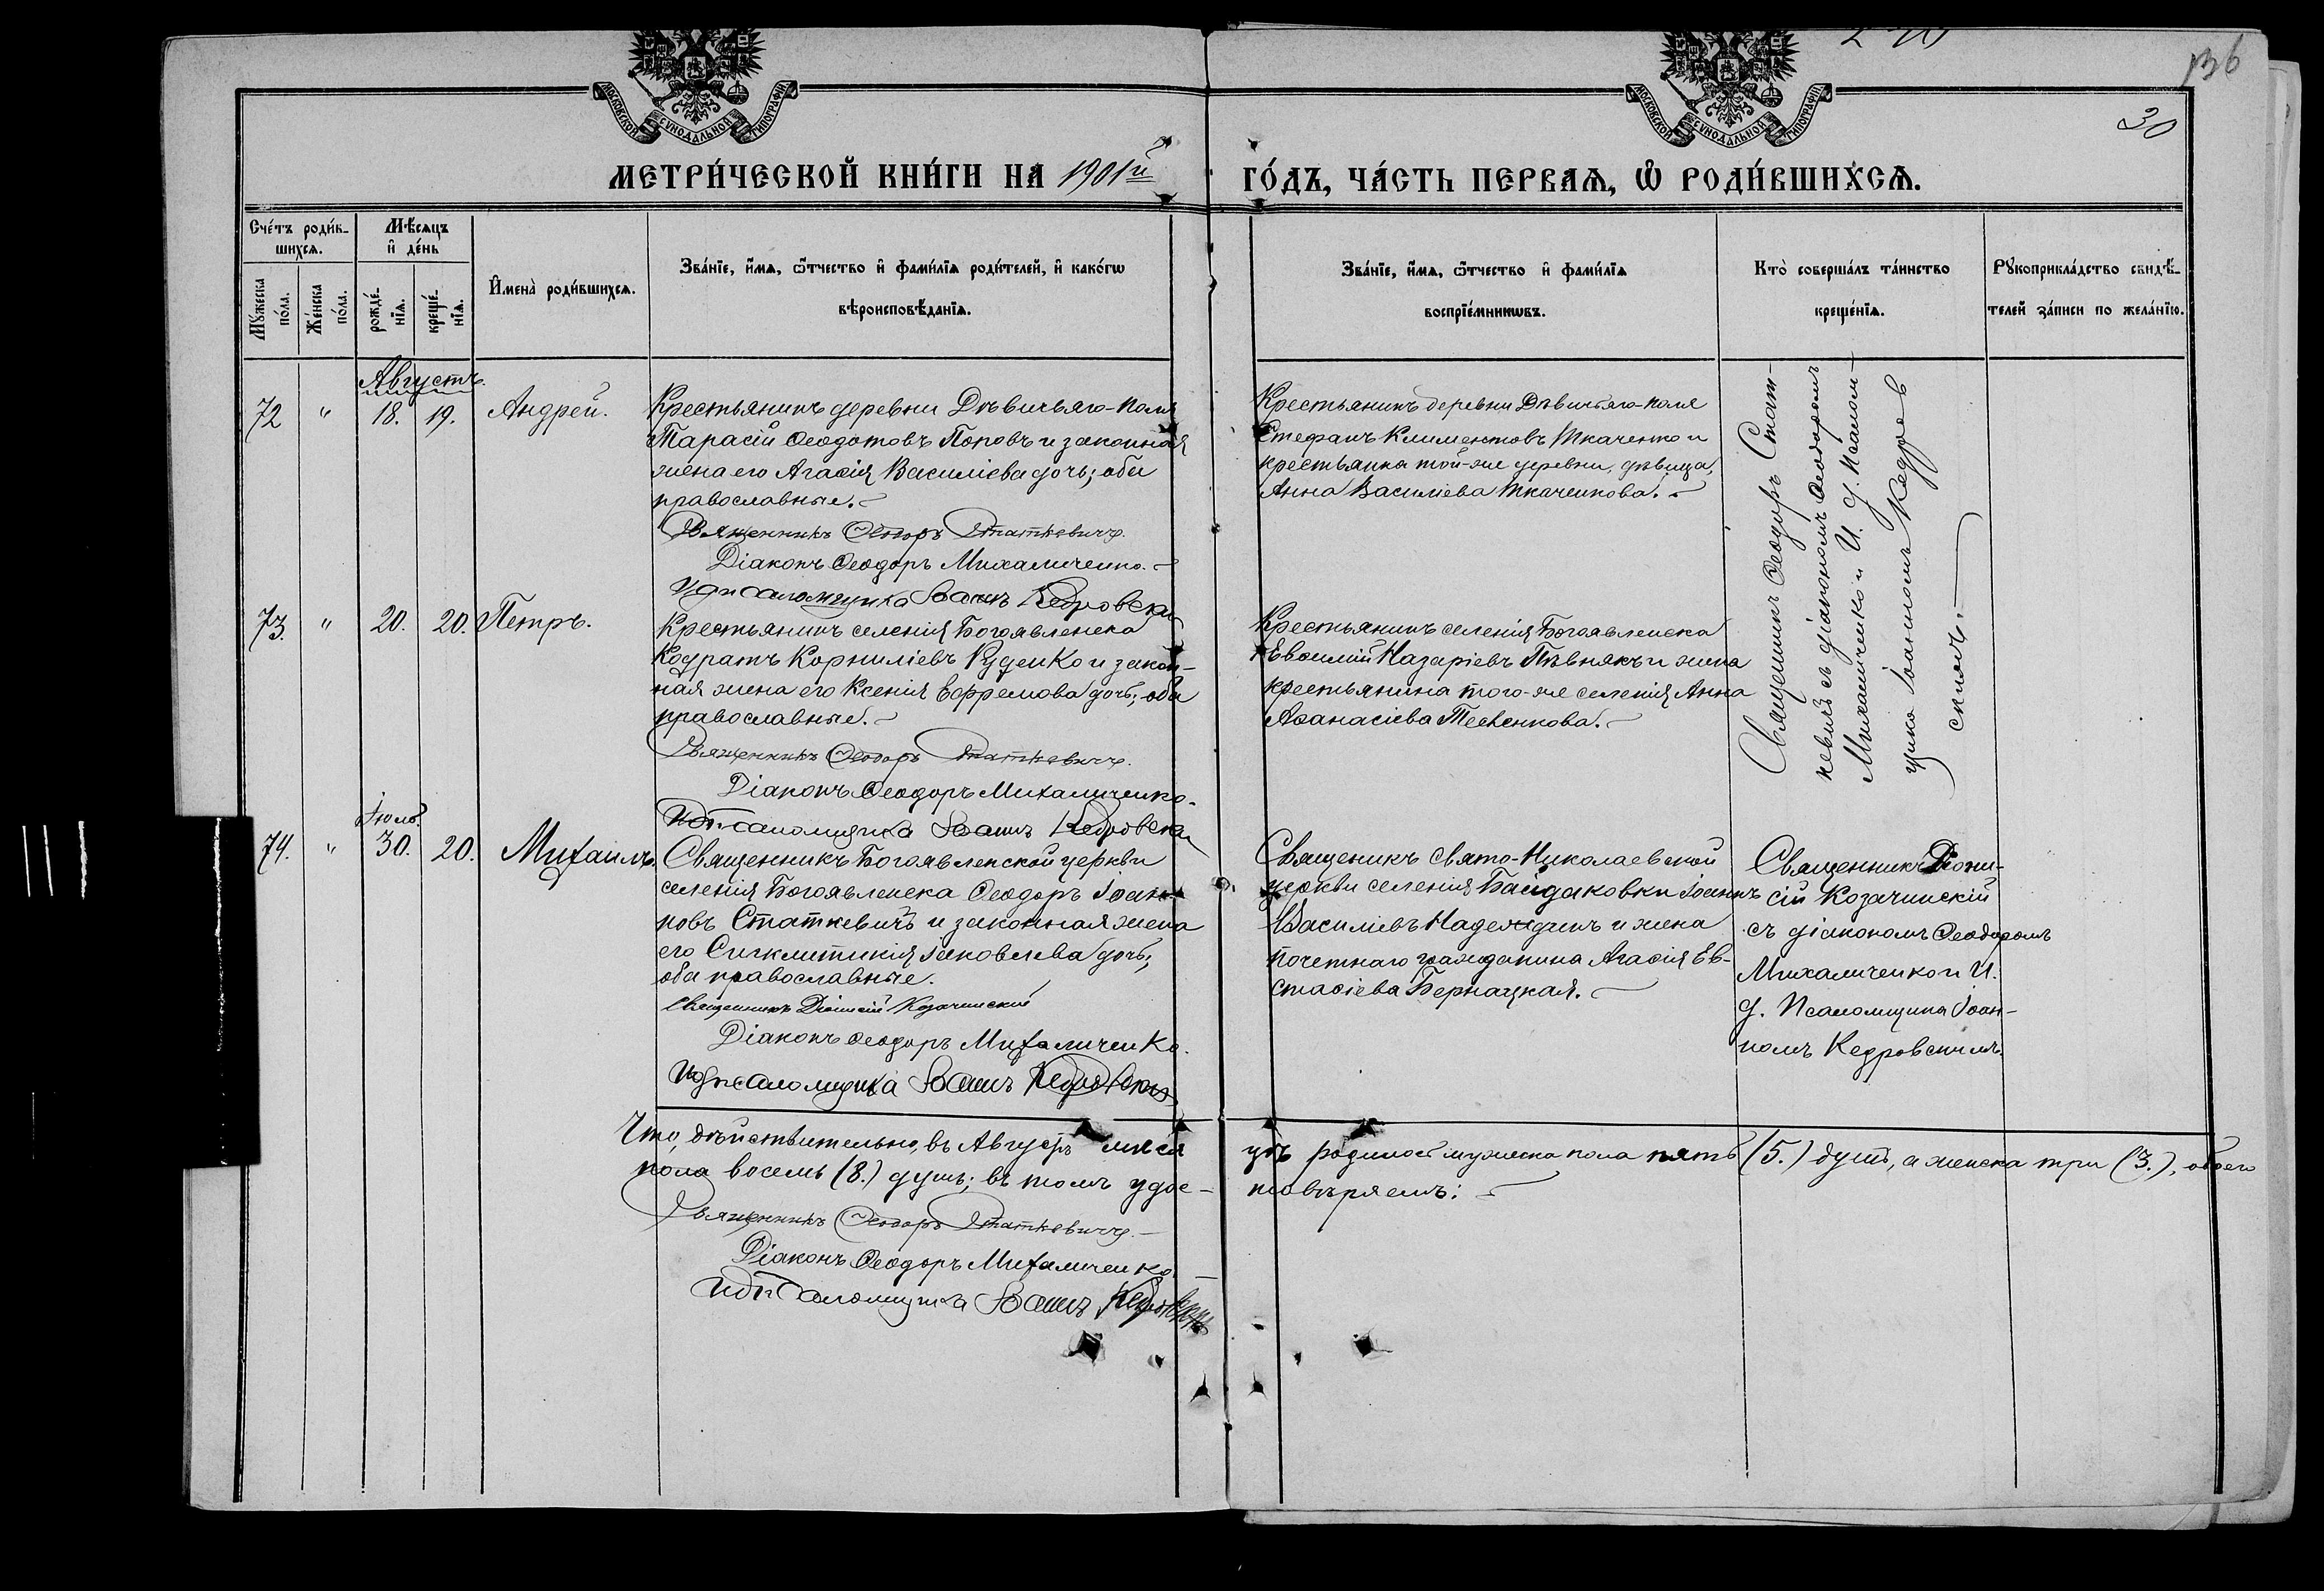 136
30
МОСКОВСКОЙ СѴНОДАЛЬНОЙ ТИПОГРАФІИ
МОСКОВСКОЙ СѴНОДАЛЬНОЙ ТИПОГРАФІИ
МЕТРИ́ЧЕСКОЙ КНИ́ГИ НА 1901й ГО́ДЪ, ЧА́СТЬ ПЕРВАѦ, Ѡ РОДИ́ВШИХСѦ.
Сче́тъ роди́в-
шихсѧ.
Мꙋжеска по́ла.
Же́нска по́ла.
Мѣ́сяцъ
и де́нь
рожде́-
нїѧ.
креще́-
нїѧ.
Имена̀ роди́вшихсѧ.
Зва́нїе, и́мѧ, ѻ҆́тчество и фами́лїѧ роди́телей, и како́гѡ
вѣроисповѣ́данїѧ.
Зва́нїе, и́мѧ, ѻ҆́тчество и фами́лїѧ
воспрїе́мникѡвъ.
Кто̀ соверша́лъ та́инство
креще́нїѧ.
Рꙋкоприкла́дство свидѣ́-
телей за́писи по жела́нїю.
Августъ.
72 " 18. 19. Андрей.
Крестьянинъ деревни Дѣвичьяго-поля
Тарасій Ѳеодотовъ Поповъ и законная
жена его Агаѳія Василіева дочь; оба
православные.
Священникъ Ѳеодоръ Статкевичъ.
Діаконъ Ѳеодоръ Михаличенко.
И д псаломщика Іоаннъ Кедровскій
Крестьянинъ деревни Дѣвичьяго-поля
Стефанъ Климентовъ Ткаченко и
крестьянка той-же деревни, дѣвица,
Анна Василіева Ткаченкова.
Священникъ Ѳеодоръ Стат-
кевичъ съ діакономъ Ѳеодоромъ
Михаличенко и И. д. псалом-
щика Іоанномъ Кедров
скимъ.
73. " 20. 20. Петръ.
Крестьянинъ селенія Богоявленска
Кодратъ Корниліевъ Руденко и закон-
ная жена его Ксенія Ефремова дочь; оба
православные.
Священникъ Ѳеодоръ Статкевичъ.
Діаконъ Ѳеодоръ Михаличенко.
И д псаломщика Іоаннъ Кедровскій
Крестьянинъ селенія Богоявленска
Евѳимій Назаріевъ Пѣвнякъ и жена
крестьянина того-же селенія Анна
Аѳанасіева
Іюль.
74. " 30. 20. Михаилъ.
Священникъ Богоявленской церкви
селенія Богоявленска Ѳеодоръ Іоан-
новъ Статкевичъ и законная жена
его Сигклитикія Іаковлева дочь;
оба православные.
Священникъ Діонисій Козачинскій
Діаконъ Ѳеодоръ Михаличенко.
И д псаломщика Іоаннъ Кедровскій
Священикъ Свято-Николаевской
церкви селенія Байдаковки Іоаннъ
Василіевъ Надеждинъ и жена
почетнаго гражданина Агаѳія Ев-
стаѳіева Бернацкая.
Священникъ Діони-
сій Козачинскій
съ діакономъ Ѳеодоромъ
Михаличенко и И.
д. Псаломщика Іоан-
номъ Кедровскимъ.
Что, дѣйствительно, въ Августѣ мѣся цѣ родилось мужеска пола пять (5.) душъ, а женска три (3.), обоего
пола восемь (8.) душъ; въ томъ удос- товѣряемъ:
Священникъ Ѳеодоръ Статкевичъ.
Діаконъ Ѳеодоръ Михаличенко
И д псаломщика Іоаннъ Кедровскій